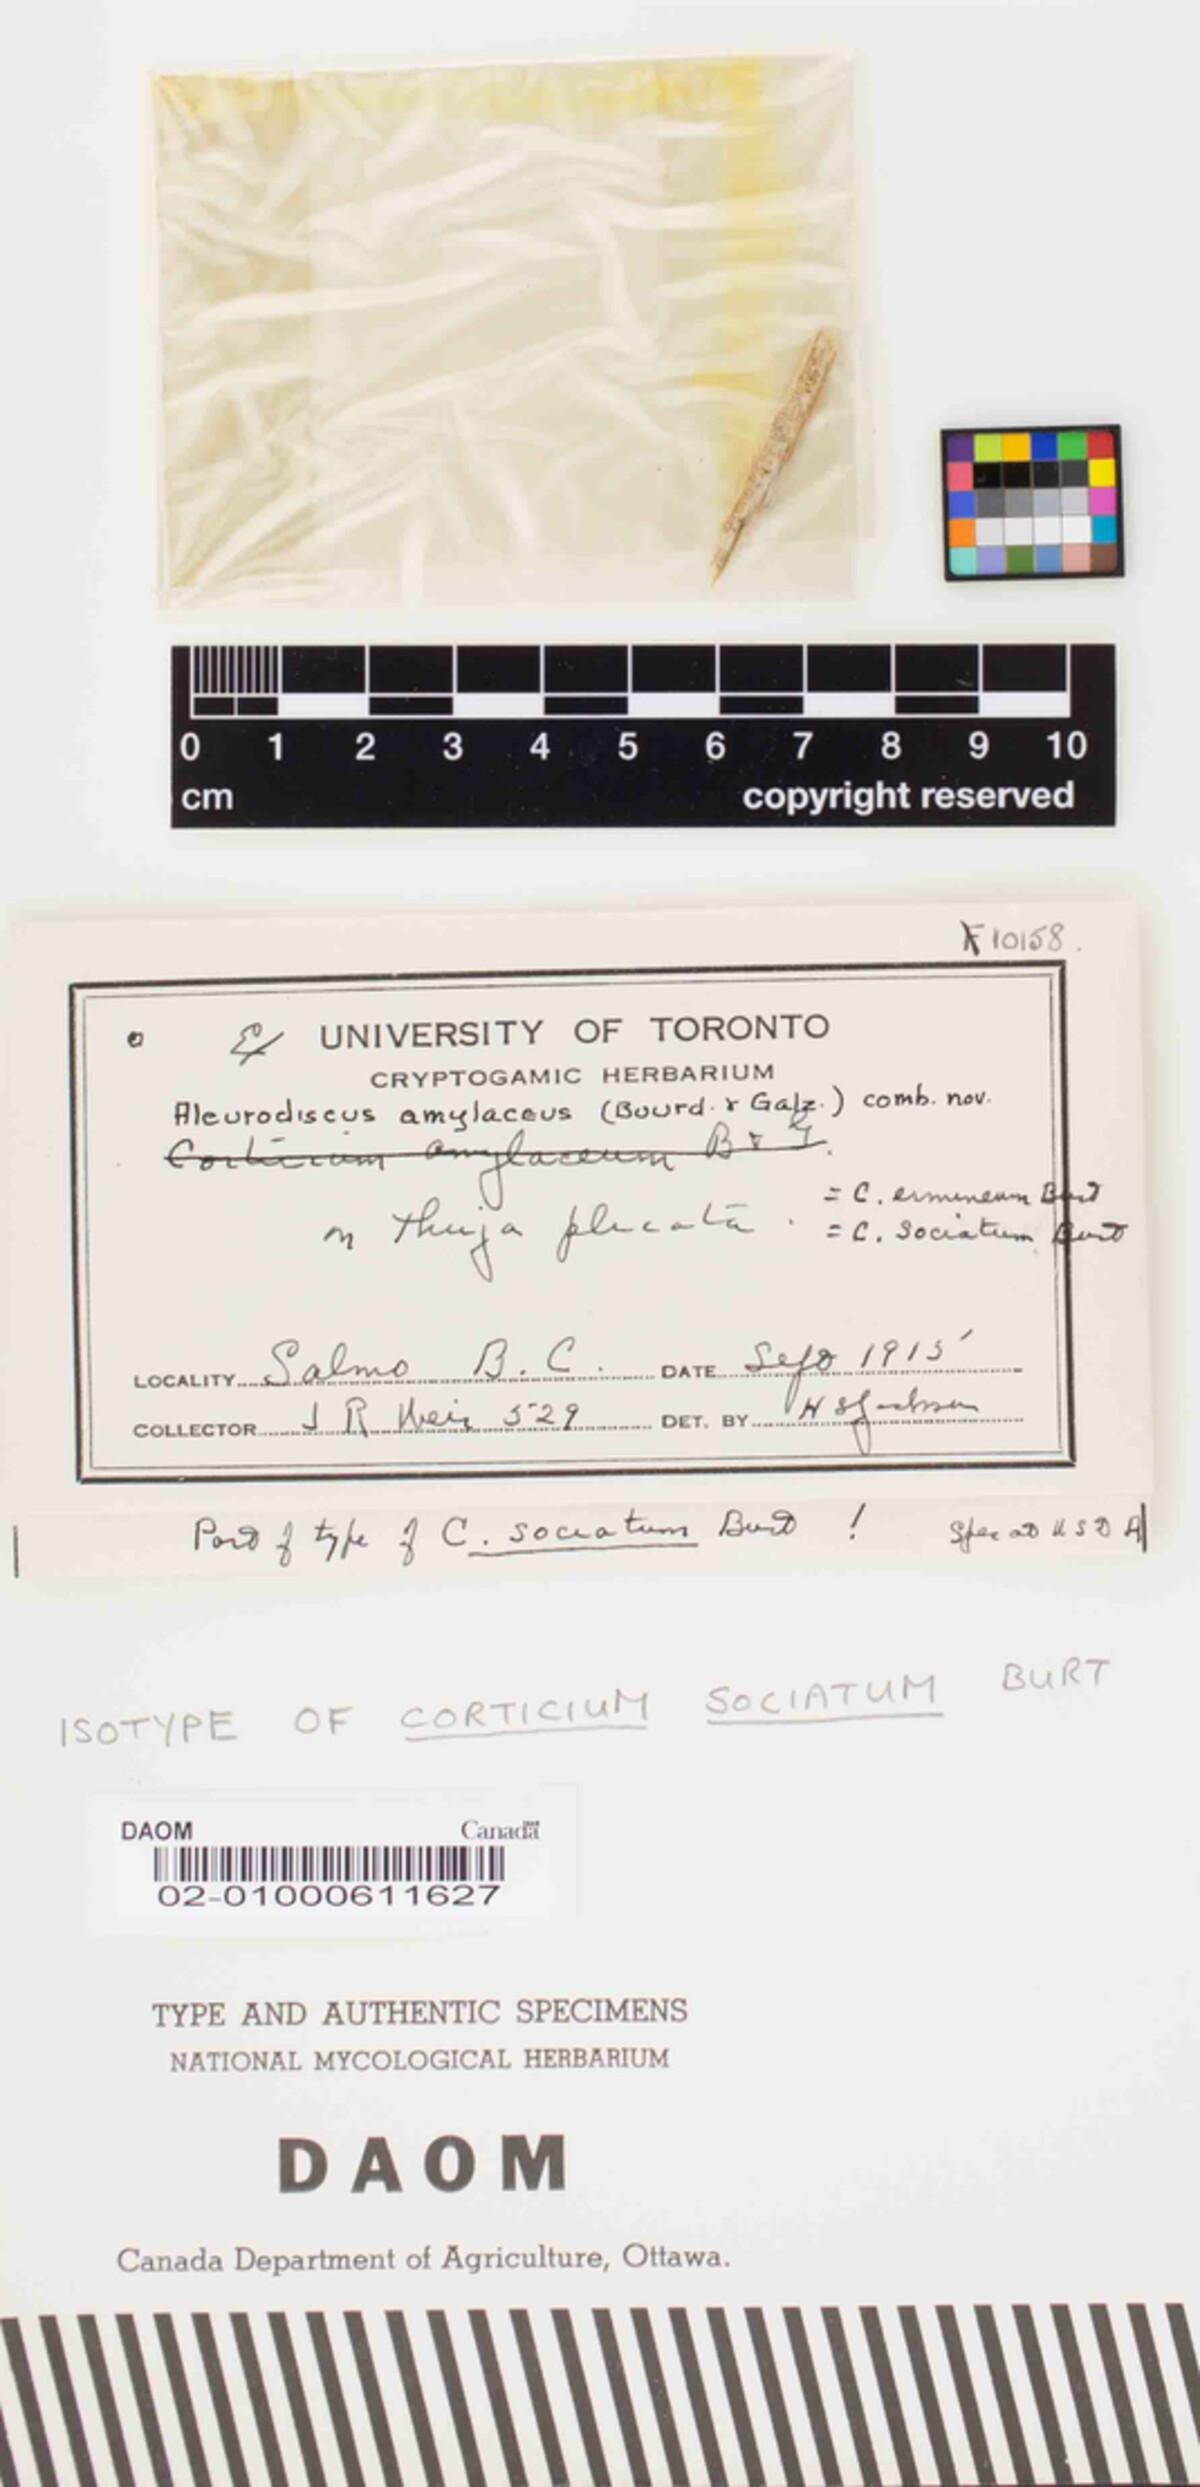 0 1 2 3 4 5 6 7 8 9 10
cm copyright reserved
F10158.
Ex UNIVERSITY OF TORONTO
CRYPTOGAMIC HERBARIUM
Aleurodiscus amylaceus (Bourd. & Galz.) comb. nov.
Corticium amylaceum B & G.
on Thuja plicata. = C. ermineum Burt
= C. sociatum Burt
LOCALITY Salmo B.C. DATE Sept 1915
COLLECTOR J R Weir 529 DET. BY H S Jackson
Part of type of C. sociatum Burt ! Spec at U S D A
ISOTYPE OF CORTICIUM SOCIATUM BURT
DAOM Canada
02-01000611627
TYPE AND AUTHENTIC SPECIMENS
NATIONAL MYCOLOGICAL HERBARIUM
DAOM
Canada Department of Agriculture, Ottawa.